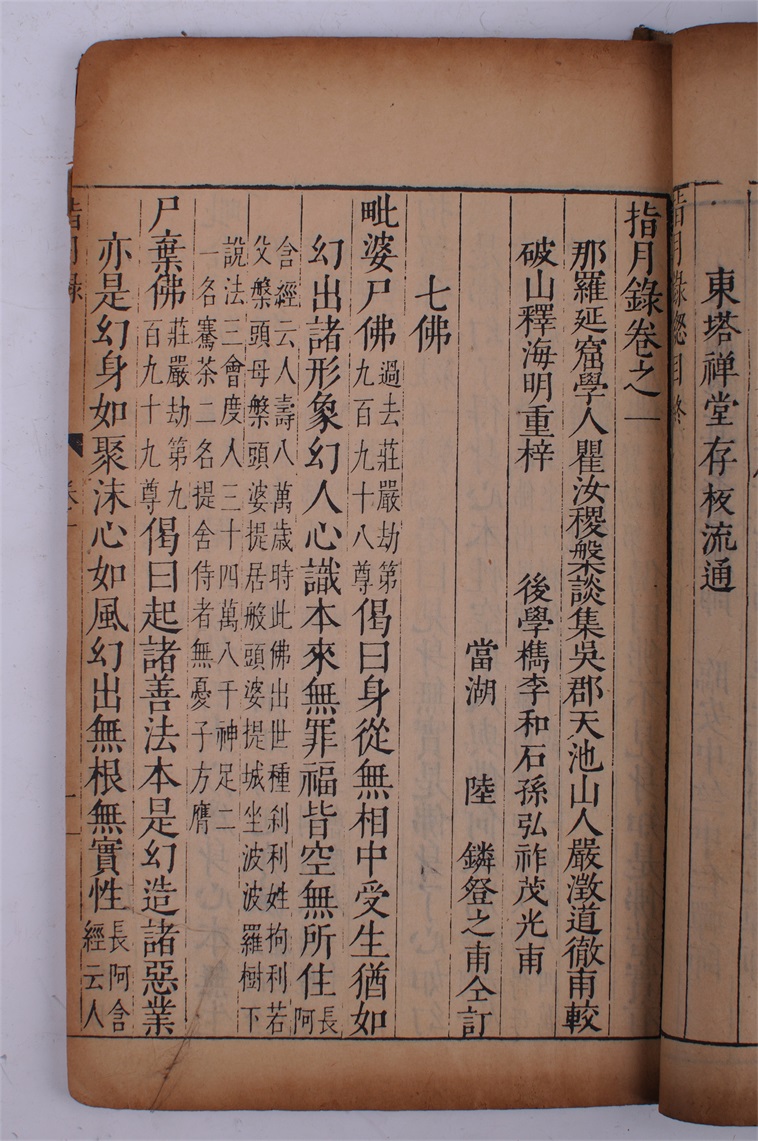 東塔禅堂存板流通
指月錄總目終
指月錄卷之一
那羅延窟學人瞿汝稷槃談集吳郡天池山人嚴澂道徹甫較
破山釋海明重梓　後學檇李和石孫弘祚茂光甫
當湖　陸　鏻登之甫仝訂
七佛
毗婆尸佛過去莊嚴劫第九百九十八尊偈曰身從無相中受生猶如
幻出諸形象幻人心識本來無罪福皆空無所住長阿
含經云人壽八萬歲時此佛出世種刹利姓拘利若
父槃頭母槃頭婆提居般頭婆提城坐波波羅樹下
說法三會度人三十四萬八千神足二
一名騫茶二名提舍侍者無憂子方膺
尸棄佛莊嚴劫第九百九十九尊偈曰起諸善法本是幻造諸惡業
亦是幻身如聚沫心如風幻出無根無實性長阿含經云人